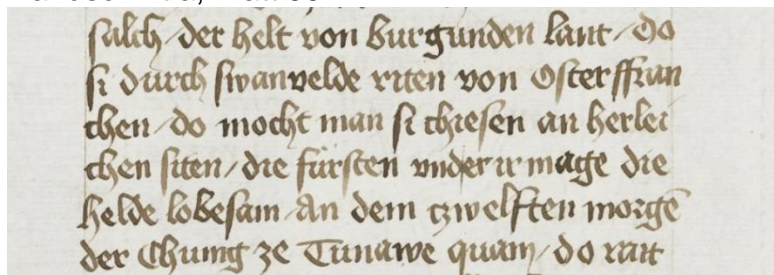 salch / der helt von burgunden lant / Do
si durch swanvelde riten von Osterffran
chen / do mocht man si chiesen an herlei
chen siten / die fürsten vnder ir mage die
helde lobesam / An dem czwelften morgē
der Chunig ze Tunawe quam / do rait